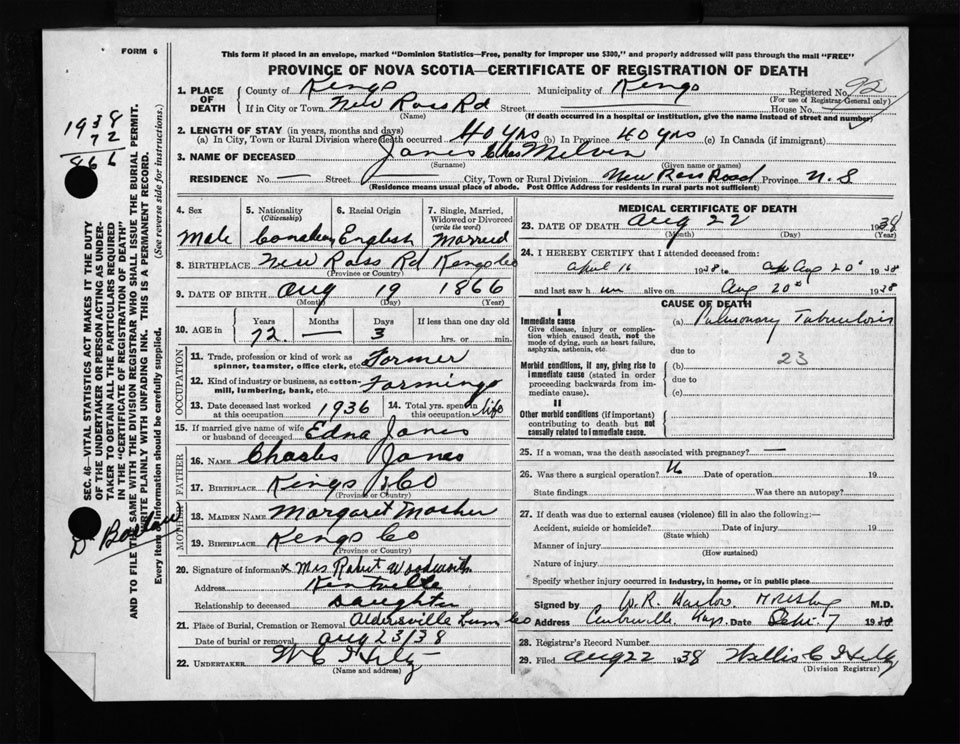 FORM 6
This form if placed in an envelope, marked "Dominion Statistics—Free, penalty for improper use $300," and properly addressed will pass through the mail "FREE"
PROVINCE OF NOVA SCOTIA—CERTIFICATE OF REGISTRATION OF DEATH
1. PLACE OF DEATH
County of Kings Municipality of Kings Registered No. 92
(For use of Registrar-General only)
If in City or Town New Ross Rd Street House No.
(Name) (If death occurred in a hospital or institution, give the name instead of street and number)
2. LENGTH OF STAY (in years, months and days)
(a) In City, Town or Rural Division where death occurred 40 yrs (b) In Province 40 yrs (c) In Canada (if immigrant)
3. NAME OF DECEASED Jones Chas Melvin
(Surname) (Given name or names)
RESIDENCE No. — Street City, Town or Rural Division New Ross Road Province N.S
(Residence means usual place of abode. Post Office Address for residents in rural parts not sufficient)
4. Sex 5. Nationality (Citizenship) 6. Racial Origin 7. Single, Married, Widowed or Divorced (write the word)
Male Canadian English Married
8. BIRTHPLACE New Ross Rd Kings Co
(Province or Country)
9. DATE OF BIRTH Aug 19 1866
(Month) (Day) (Year)
10. AGE in Years Months Days If less than one day old
72 — 3 hrs. or min.
OCCUPATION
11. Trade, profession or kind of work as spinner, teamster, office clerk, etc. Farmer
12. Kind of industry or business, as cotton-mill, lumbering, bank, etc. Farming
13. Date deceased last worked at this occupation 1936 14. Total yrs. spent in this occupation life
15. If married give name of wife or husband of deceased Edna Jones
FATHER
16. NAME Charles Jones
17. BIRTHPLACE Kings Co
(Province or Country)
MOTHER
18. MAIDEN NAME Margaret Mosher
19. BIRTHPLACE Kings Co
(Province or Country)
20. Signature of informant x Mrs Robert Woodworth
Address Kentville
Relationship to deceased Daughter
21. Place of Burial, Cremation or Removal Aldersville Lun Co
Date of burial or removal Aug 23/38
22. UNDERTAKER
(Name and address)
MEDICAL CERTIFICATE OF DEATH
23. DATE OF DEATH Aug 22 1938
(Month) (Day) (Year)
24. I HEREBY CERTIFY that I attended deceased from:
April 16 1938 to Aug 20 1938
and last saw him alive on Aug 20th 1938
CAUSE OF DEATH
I
Immediate cause
Give disease, injury or complication which caused death, not the mode of dying, such as heart failure, asphyxia, asthenia, etc.
(a) Pulmonary Tuberculosis
due to
Morbid conditions, if any, giving rise to immediate cause (stated in order proceeding backwards from immediate cause).
(b) 23
due to
(c)
II
Other morbid conditions (if important) contributing to death but not causally related to immediate cause.
25. If a woman, was the death associated with pregnancy? —
26. Was there a surgical operation? Date of operation 19
State findings Was there an autopsy?
27. If death was due to external causes (violence) fill in also the following:—
Accident, suicide or homicide? Date of injury 19
(State which)
Manner of injury
(How sustained)
Nature of injury
Specify whether injury occurred in industry, in home, or in public place
Signed by M.D.
Address Date 19
28. Registrar's Record Number
29. Filed Aug 22 1938
(Division Registrar)
1938
72
866
SEC. 46—VITAL STATISTICS ACT MAKES IT THE DUTY
OF THE UNDERTAKER OR PERSON ACTING AS UNDER-
TAKER TO OBTAIN ALL THE PARTICULARS REQUIRED
IN THE "CERTIFICATE OF REGISTRATION OF DEATH"
AND TO FILE THE SAME WITH THE DIVISION REGISTRAR WHO SHALL ISSUE THE BURIAL PERMIT.
WRITE PLAINLY WITH UNFADING INK. THIS IS A PERMANENT RECORD.
Every item of information should be carefully supplied. (See reverse side for instructions.)